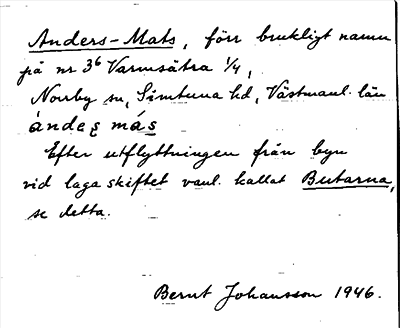 Anders-Mats, förr brukligt namn
på nr 3⁶ Varmsätra 1/4,
Norrby sn, Simtuna hd, Västmanl. län
ándeş más
Efter utflyttningen från byn
vid laga skiftet vanl. kallat Butarna,
se detta.
Bernt Johansson 1946.